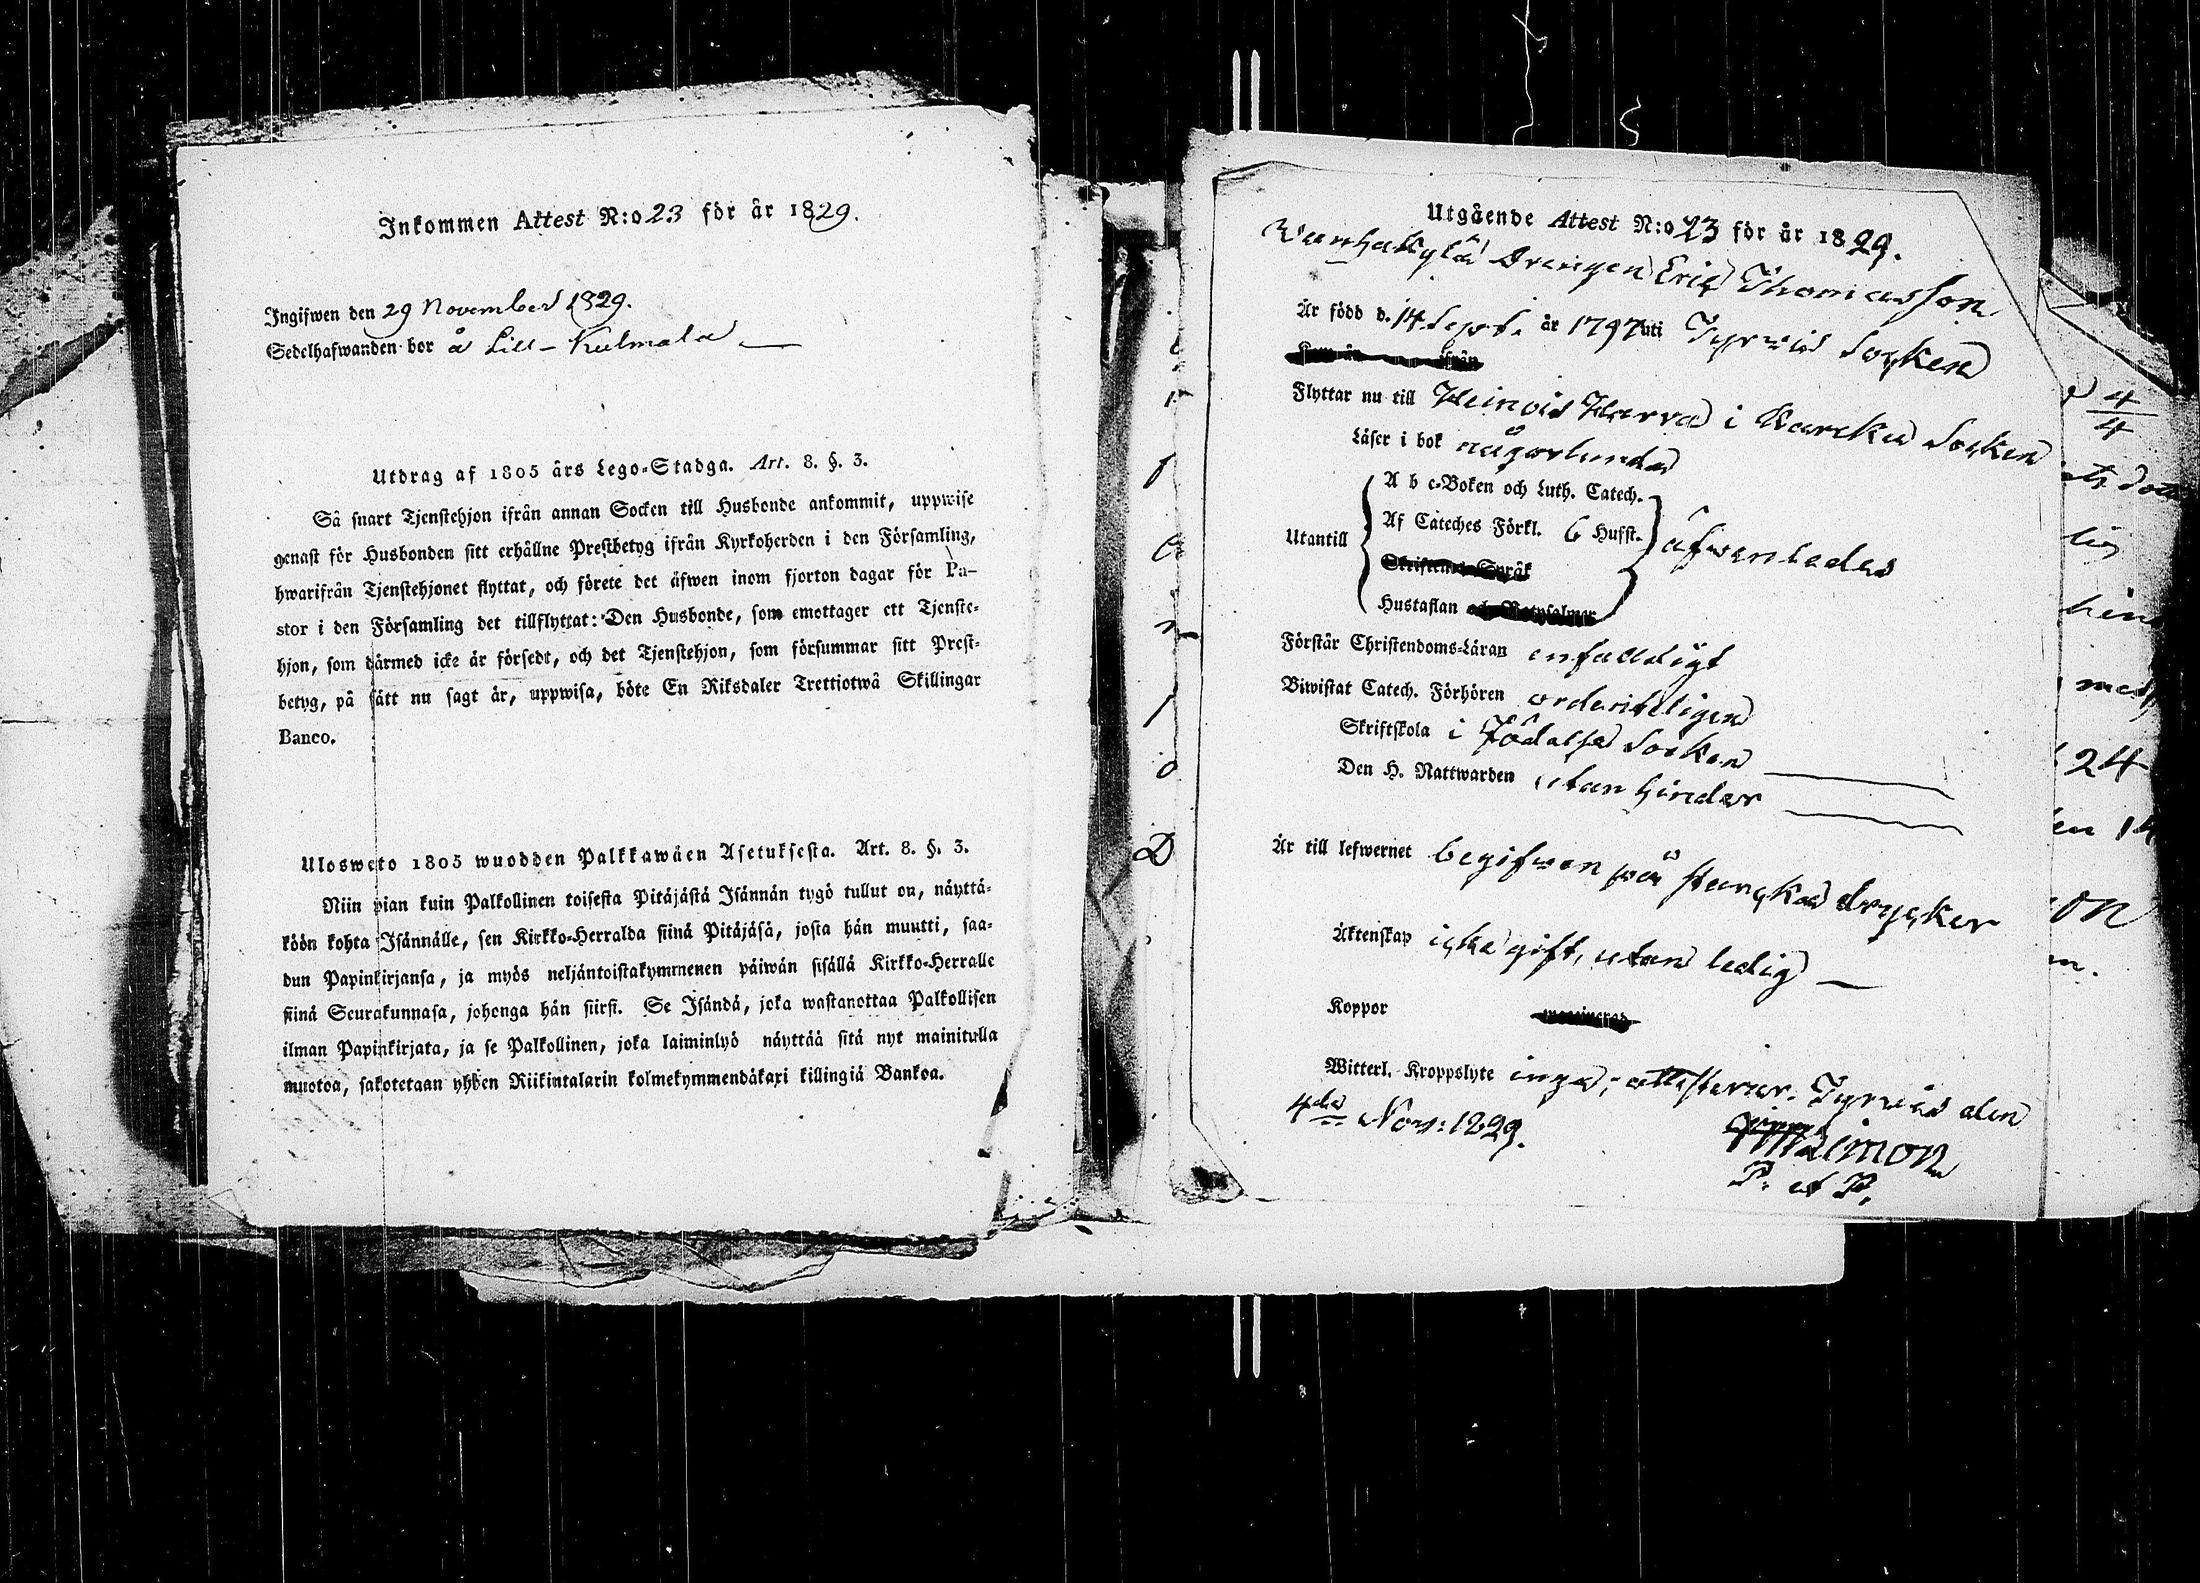 Inkommen Attest N:o 23 för år 1829.
Ingifwen den 29 November 1829.
Sedelhafwanden bor å Lill-Kulmala
Utdrag af 1805 års Lego-Stadga. Art. 8. §. 3.
Så snart Tjenstehjon ifrån annan Socken till Husbonde ankommit, uppwise
genast för Husbonden sitt erhållne Prestbetyg ifrån Kyrkoherden i den Församling,
hwarifrån Tjenstehjonet flyttat, och förete det äfwen inom fjorton dagar för Pa-
stor i den Församling det tillflyttat: Den Husbonde, som emottager ett Tjenste-
hjon, som därmed icke är försedt, och det Tjenstehjon, som försummar sitt Prest-
betyg, på sätt nu sagt är, uppwisa, böte En Riksdaler Trettiotwå Skillingar
Banco.
Ulosweto 1805 wuodden Palkkawäen Asetuksesta. Art. 8. §. 3.
Niin pian kuin Palkollinen toisesta Pitäjästä Isännän tygö tullut on, näyttä-
köön kohta Isännälle, sen Kirkko-Herralda siinä Pitäjäsä, josta hän muutti, saa-
dun Papinkirjansa, ja myös neljäntoistakymmenen päiwän sisällä Kirkko-Herralle
siinä Seurakunnasa, johonga hän siirsi. Se Isändä, joka wastanottaa Palkollisen
ilman Papinkirjata, ja se Palkollinen, joka laiminlyö näyttää sitä nyt mainitulla
muotoa, sakotetaan yhden Riikintalarin kolmekymmendäkaxi killingiä Bankoa.
Utgående Attest N:o 23 för år 1829.
Wanhakylä Drengen Eric Thomasson
Är född d. 14 Sept. år 1797 uti Tyrwis Socken
Flyttar nu till Heinois Harra i Karcku Socken
Läser i bok någorlunda
A b c-Boken och Luth. Catech.
Utantill Af Cateches Förkl. 6 Hufst. äfwenledes
Skriftenes Språk
Hustaflan och Botpsalmer
Förstår Christendoms-Läran enfaldigt
Biwistat Catech. Förhören ordenteligen
Skriftskola i Födelse Socken
Den H. Nattwarden utan hinder
Är till lefwernet begifwen på starcka drycker
Äktenskap icke gift, utan ledig
Koppor
Witterl. Kroppslyte inga; attesterar. Tyrwis den
4de Nov: 1829.
Simon
P. et P.